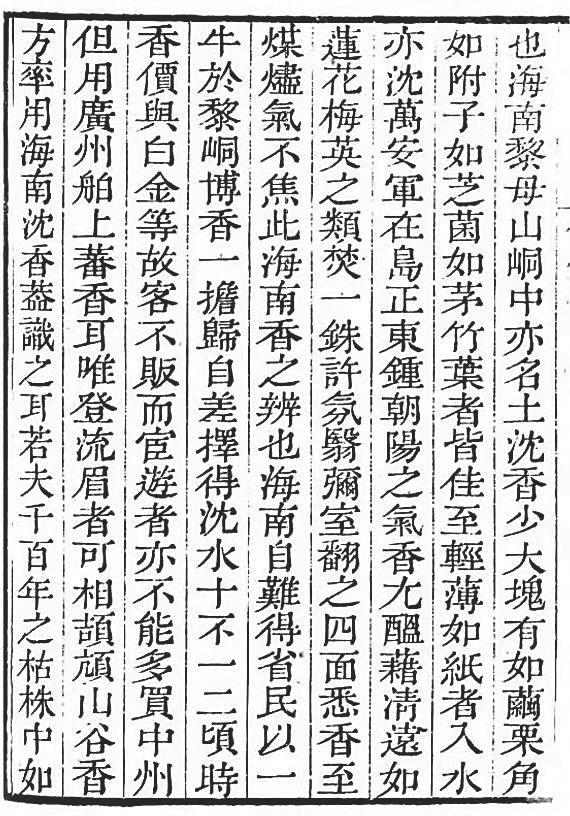 也海南黎母山峒中亦名土沈香少大塊有如繭栗角
如附子如芝菌如茅竹葉者皆佳至輕薄如紙者入水
亦沈萬安軍在島正東鍾朝陽之氣香尤醞藉清遠如
蓮花梅英之類焚一銖許氛翳彌室翻之四面悉香至
煤燼氣不焦此海南香之辨也海南自難得省民以一
牛於黎峒博香一擔歸自差擇得沈水十不一二頃時
香價與白金等故客不販而宦遊者亦不能多買中州
但用廣州舶上蕃香耳唯登流眉者可相頡頏山谷香
方率用海南沈香蓋識之耳若夫千百年之枯株中如